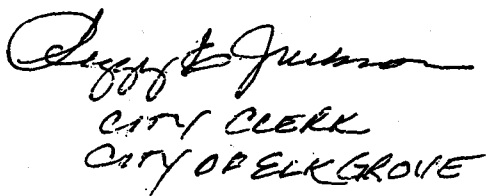 Peggy E. Jackson
CITY CLERK
CITY OF ELK GROVE